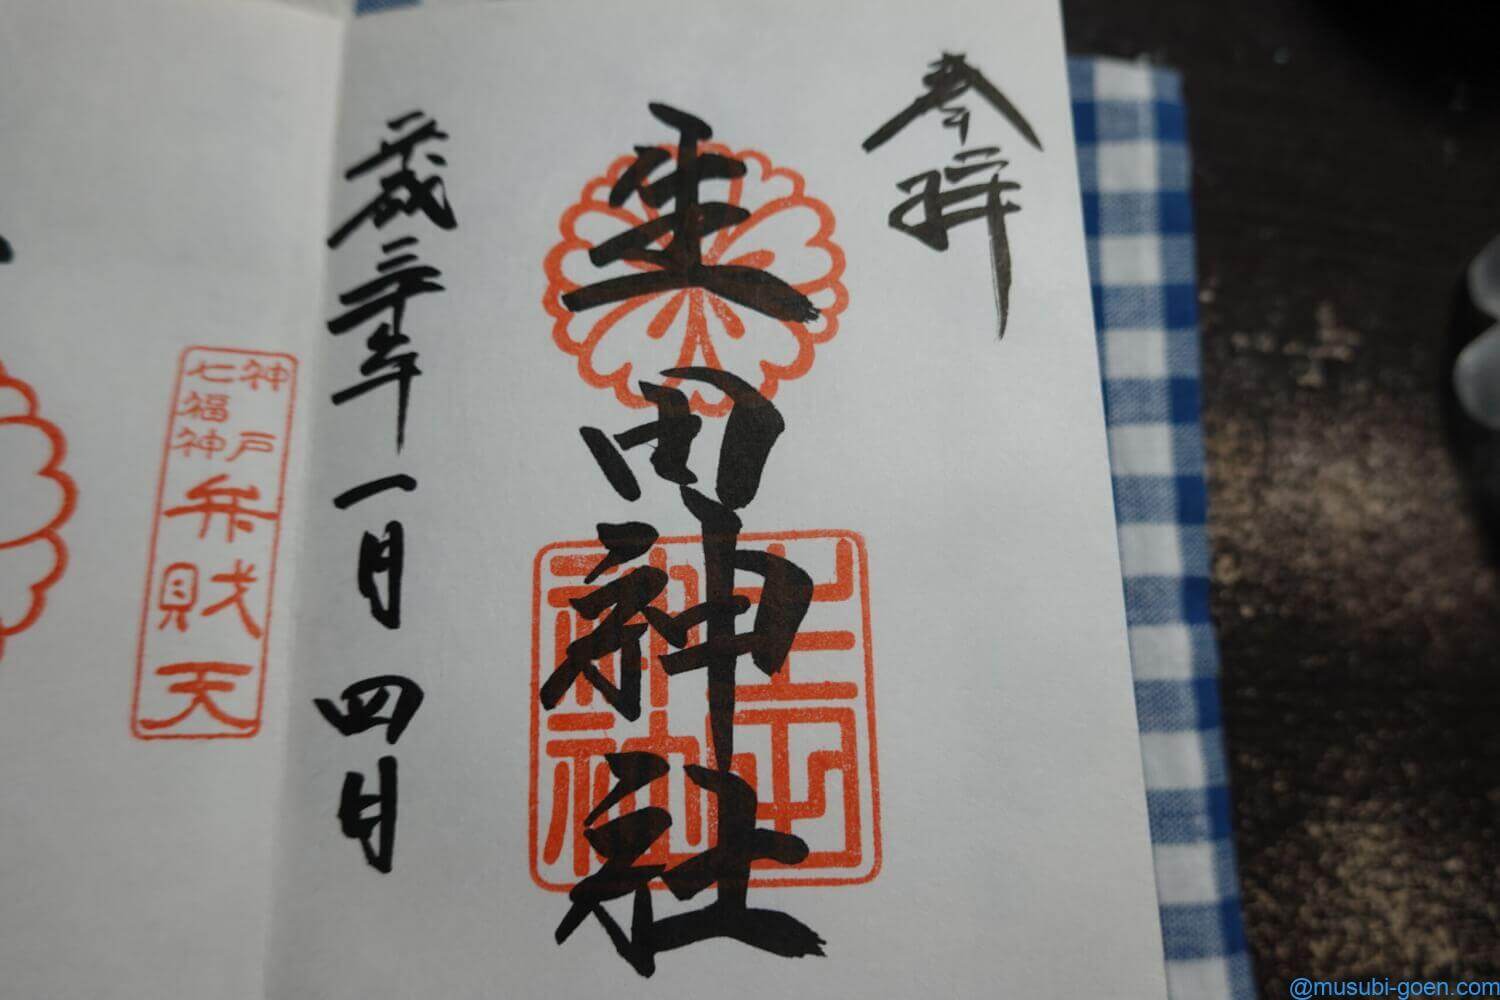 奉拝
生田神社
生田神社
平成三十年一月四日
神戸七福神
弁財天
@musubi-goen.com